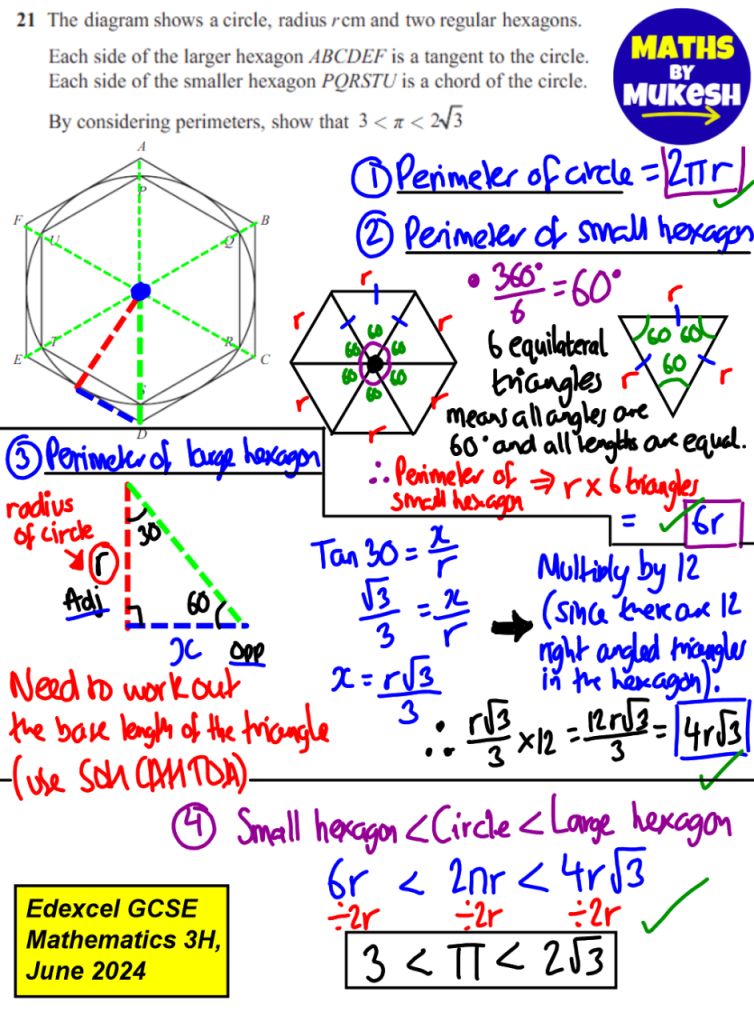 21 The diagram shows a circle, radius r cm and two regular hexagons.
Each side of the larger hexagon ABCDEF is a tangent to the circle.
Each side of the smaller hexagon PQRSTU is a chord of the circle.
By considering perimeters, show that 3 < π < 2√3
MATHS
BY
MUKESH
A
P
F
U
B
Q
T
R
E
C
S
D
① Perimeter of circle = 2πr
② Perimeter of small hexagon
• 360°/6 = 60°
r
r
r
r
r
r
60
60
60
60
60
60
6 equilateral
triangles
means all angles are
60° and all lengths are equal.
r
60 60
60
r
r
∴ Perimeter of
small hexagon
⇒ r × 6 triangles
= 6r
③ Perimeter of large hexagon
radius
of circle
r
Adj
30
60
x
Opp
Need to work out
the base length of the triangle
(use SOH CAH TOA)
Tan 30 = x/r
√3/3 = x/r
x = r√3/3
Multiply by 12
(since there are 12
right angled triangles
in the hexagon).
∴ r√3/3 × 12 = 12r√3/3 = 4r√3
④ Small hexagon < Circle < Large hexagon
6r < 2πr < 4r√3
÷2r ÷2r ÷2r
3 < π < 2√3
Edexcel GCSE
Mathematics 3H,
June 2024